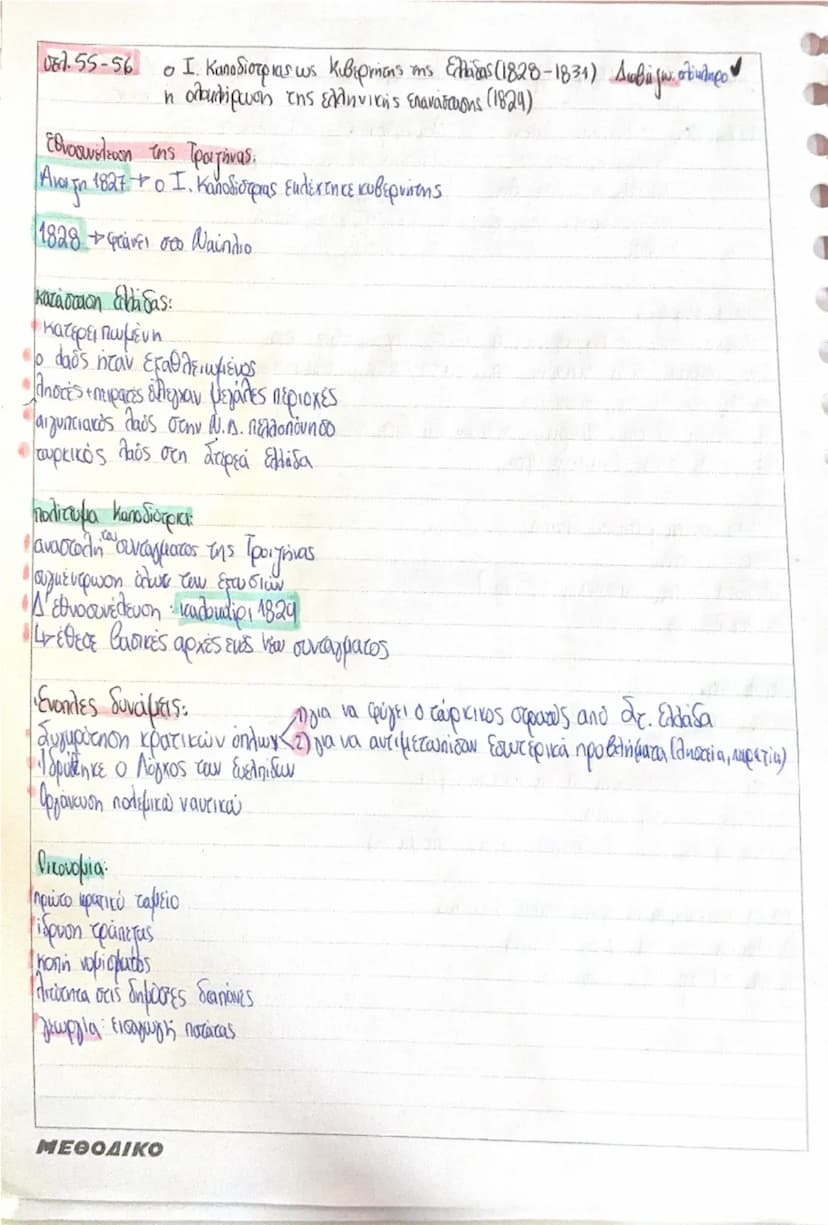 σελ. 55-56 ο Ι. Καποδίστριας ως Κυβερνήτης της Ελλάδας (1828-1831) Διαβάζω ολόκληρο
η ολοκλήρωση της ελληνικής επανάστασης (1829)
Εθνοσυνέλευση της Τροιζήνας:
Άνοιξη 1827 → ο Ι. Καποδίστριας εκλέχτηκε κυβερνήτης
1828 → φτάνει στο Ναύπλιο
κατάσταση Ελλάδας:
κατερειπωμένη
ο λαός ήταν εξαθλειωμένος
ληστές + πειρατές έλεγχαν μεγάλες περιοχές
αιγυπτιακός λαός στην Ν.Δ. πελλοπόννησο
τουρκικός λαός στη Στερεά Ελλάδα
πολίτευμα Καποδίστρια:
αναστολή του συντάγματος της Τροιζήνας
συγκέντρωση όλων των εξουσιών
Δ' εθνοσυνέλευση: καλοκαίρι 1829
↳ έθεσε βασικές αρχές ενός νέου συντάγματος
Ένοπλες δυνάμεις: 1) για να φύγει ο τούρκικος στρατός από Στ. Ελλάδα
Συγκρότηση κρατικών όπλων 2) για να αντιμετωπίσουν εσωτερικά προβλήματα (ληστεία, πειρατία)
Ιδρύθηκε ο Λόχος των Ευελπίδων
Οργάνωση πολεμικού ναυτικού
Οικονομία:
πρώτο κρατικό ταμείο
ίδρυση τράπεζας
κοπή νομίσματος
λιτότητα στις δημόσιες δαπάνες
γεωργία: εισαγωγή πατάτας
ΜΕΘΟΔΙΚΟ